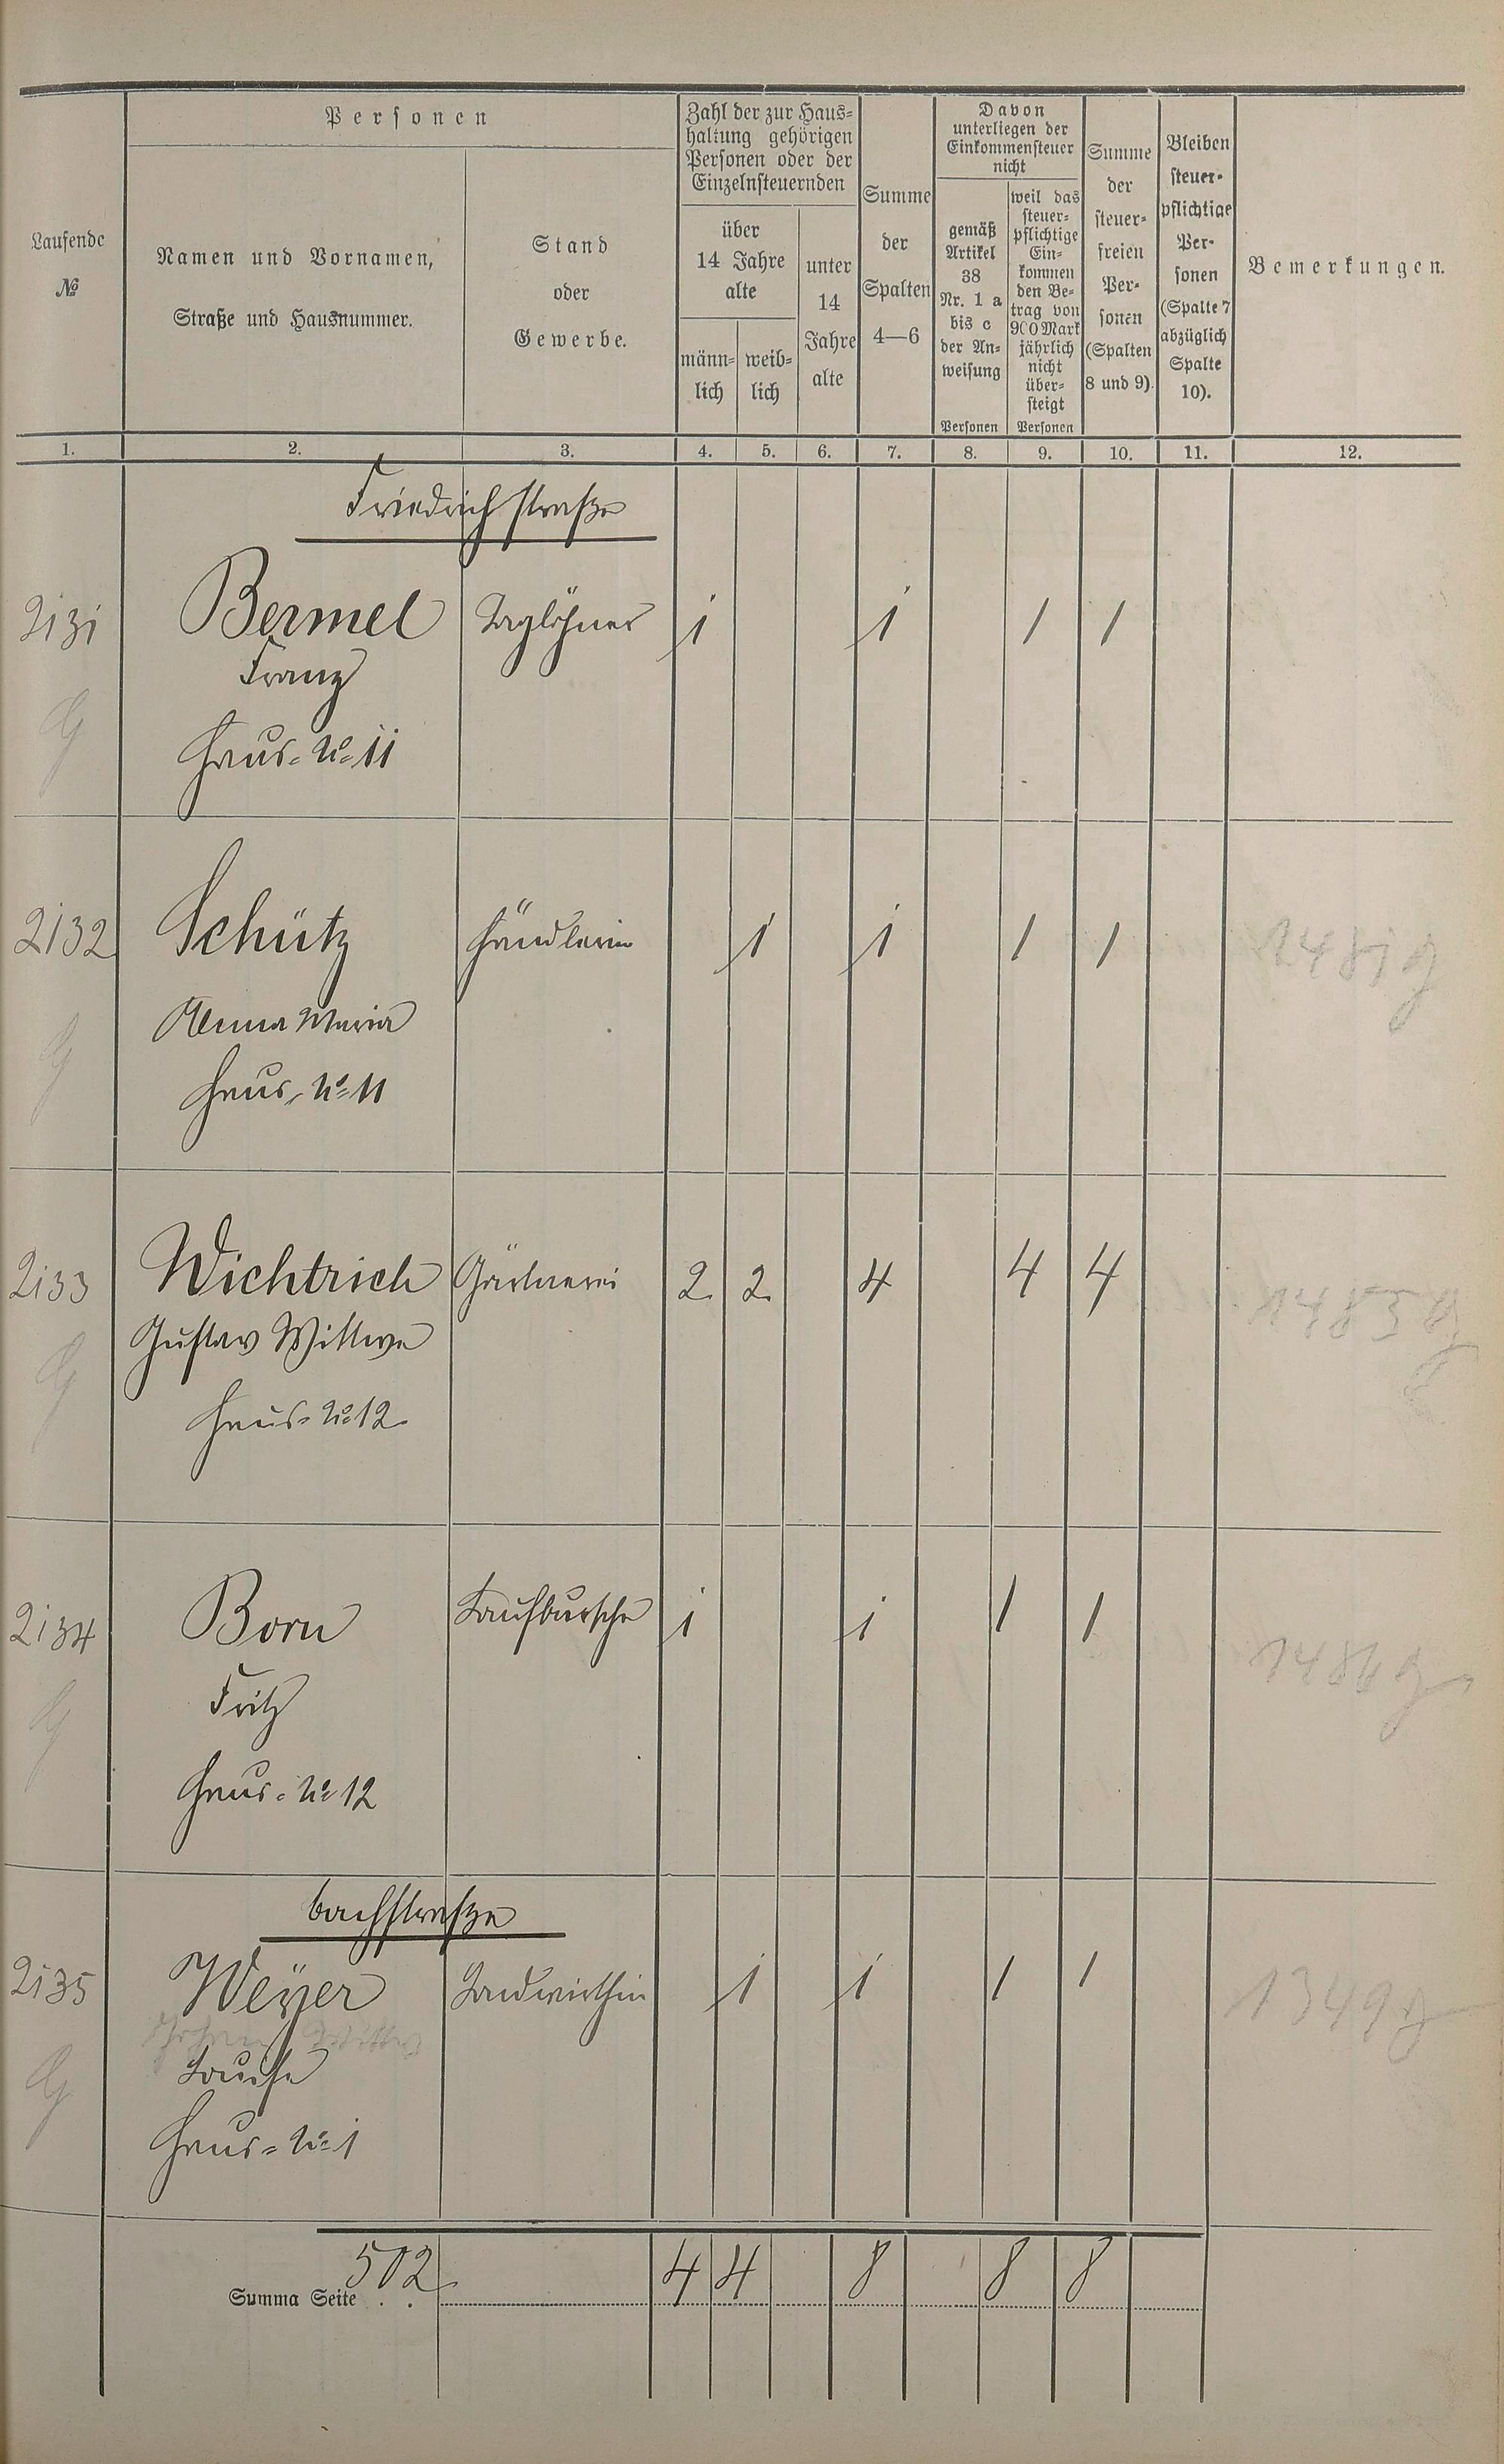 Personen
Zahl der zur Haus=
haltung gehörigen
Personen oder der
Einzelnsteuernden
Davon
unterliegen der
Einkommensteuer
nicht
Laufende
№
Namen und Vornamen,
Straße und Hausnummer.
Stand
oder
Gewerbe.
über
14 Jahre
alte
männ=
lich
weib=
lich
unter
14
Jahre
alte
Summe
der
Spalten
4—6
gemäß
Artikel
38
Nr. 1 a
bis c
der An=
weisung
Personen
weil das
steuer=
pflichtige
Ein=
kommen
den Be=
trag von
900 Mark
jährlich
nicht
über=
steigt
Personen
Summe
der
steuer=
freien
Per=
sonen
(Spalten
8 und 9).
Bleiben
steuer=
pflichtige
Per=
sonen
(Spalte 7
abzüglich
Spalte
10).
Bemerkungen.
1. 2. 3. 4. 5. 6. 7. 8. 9. 10. 11. 12.
Friedrichstraße
2131 Bermel Taglöhner 1 1 1 1
Franz
Haus=No 11
2132 Schütz Händlerin 1 1 1 1 1481
Anna Maria
Haus=No 11
2133 Wichtrich Gärtnerei 2 2 4 4 4 1483
Gustav Wittwe
Haus=No 12
2134 Born Laufbursche 1 1 1 1 1486
Fritz
Haus=No 12
Bachstraße
2135 Weÿer Landwirthin 1 1 1 1 1349
Louise
Haus=No 1
Summa Seite 502 4 4 8 8 8